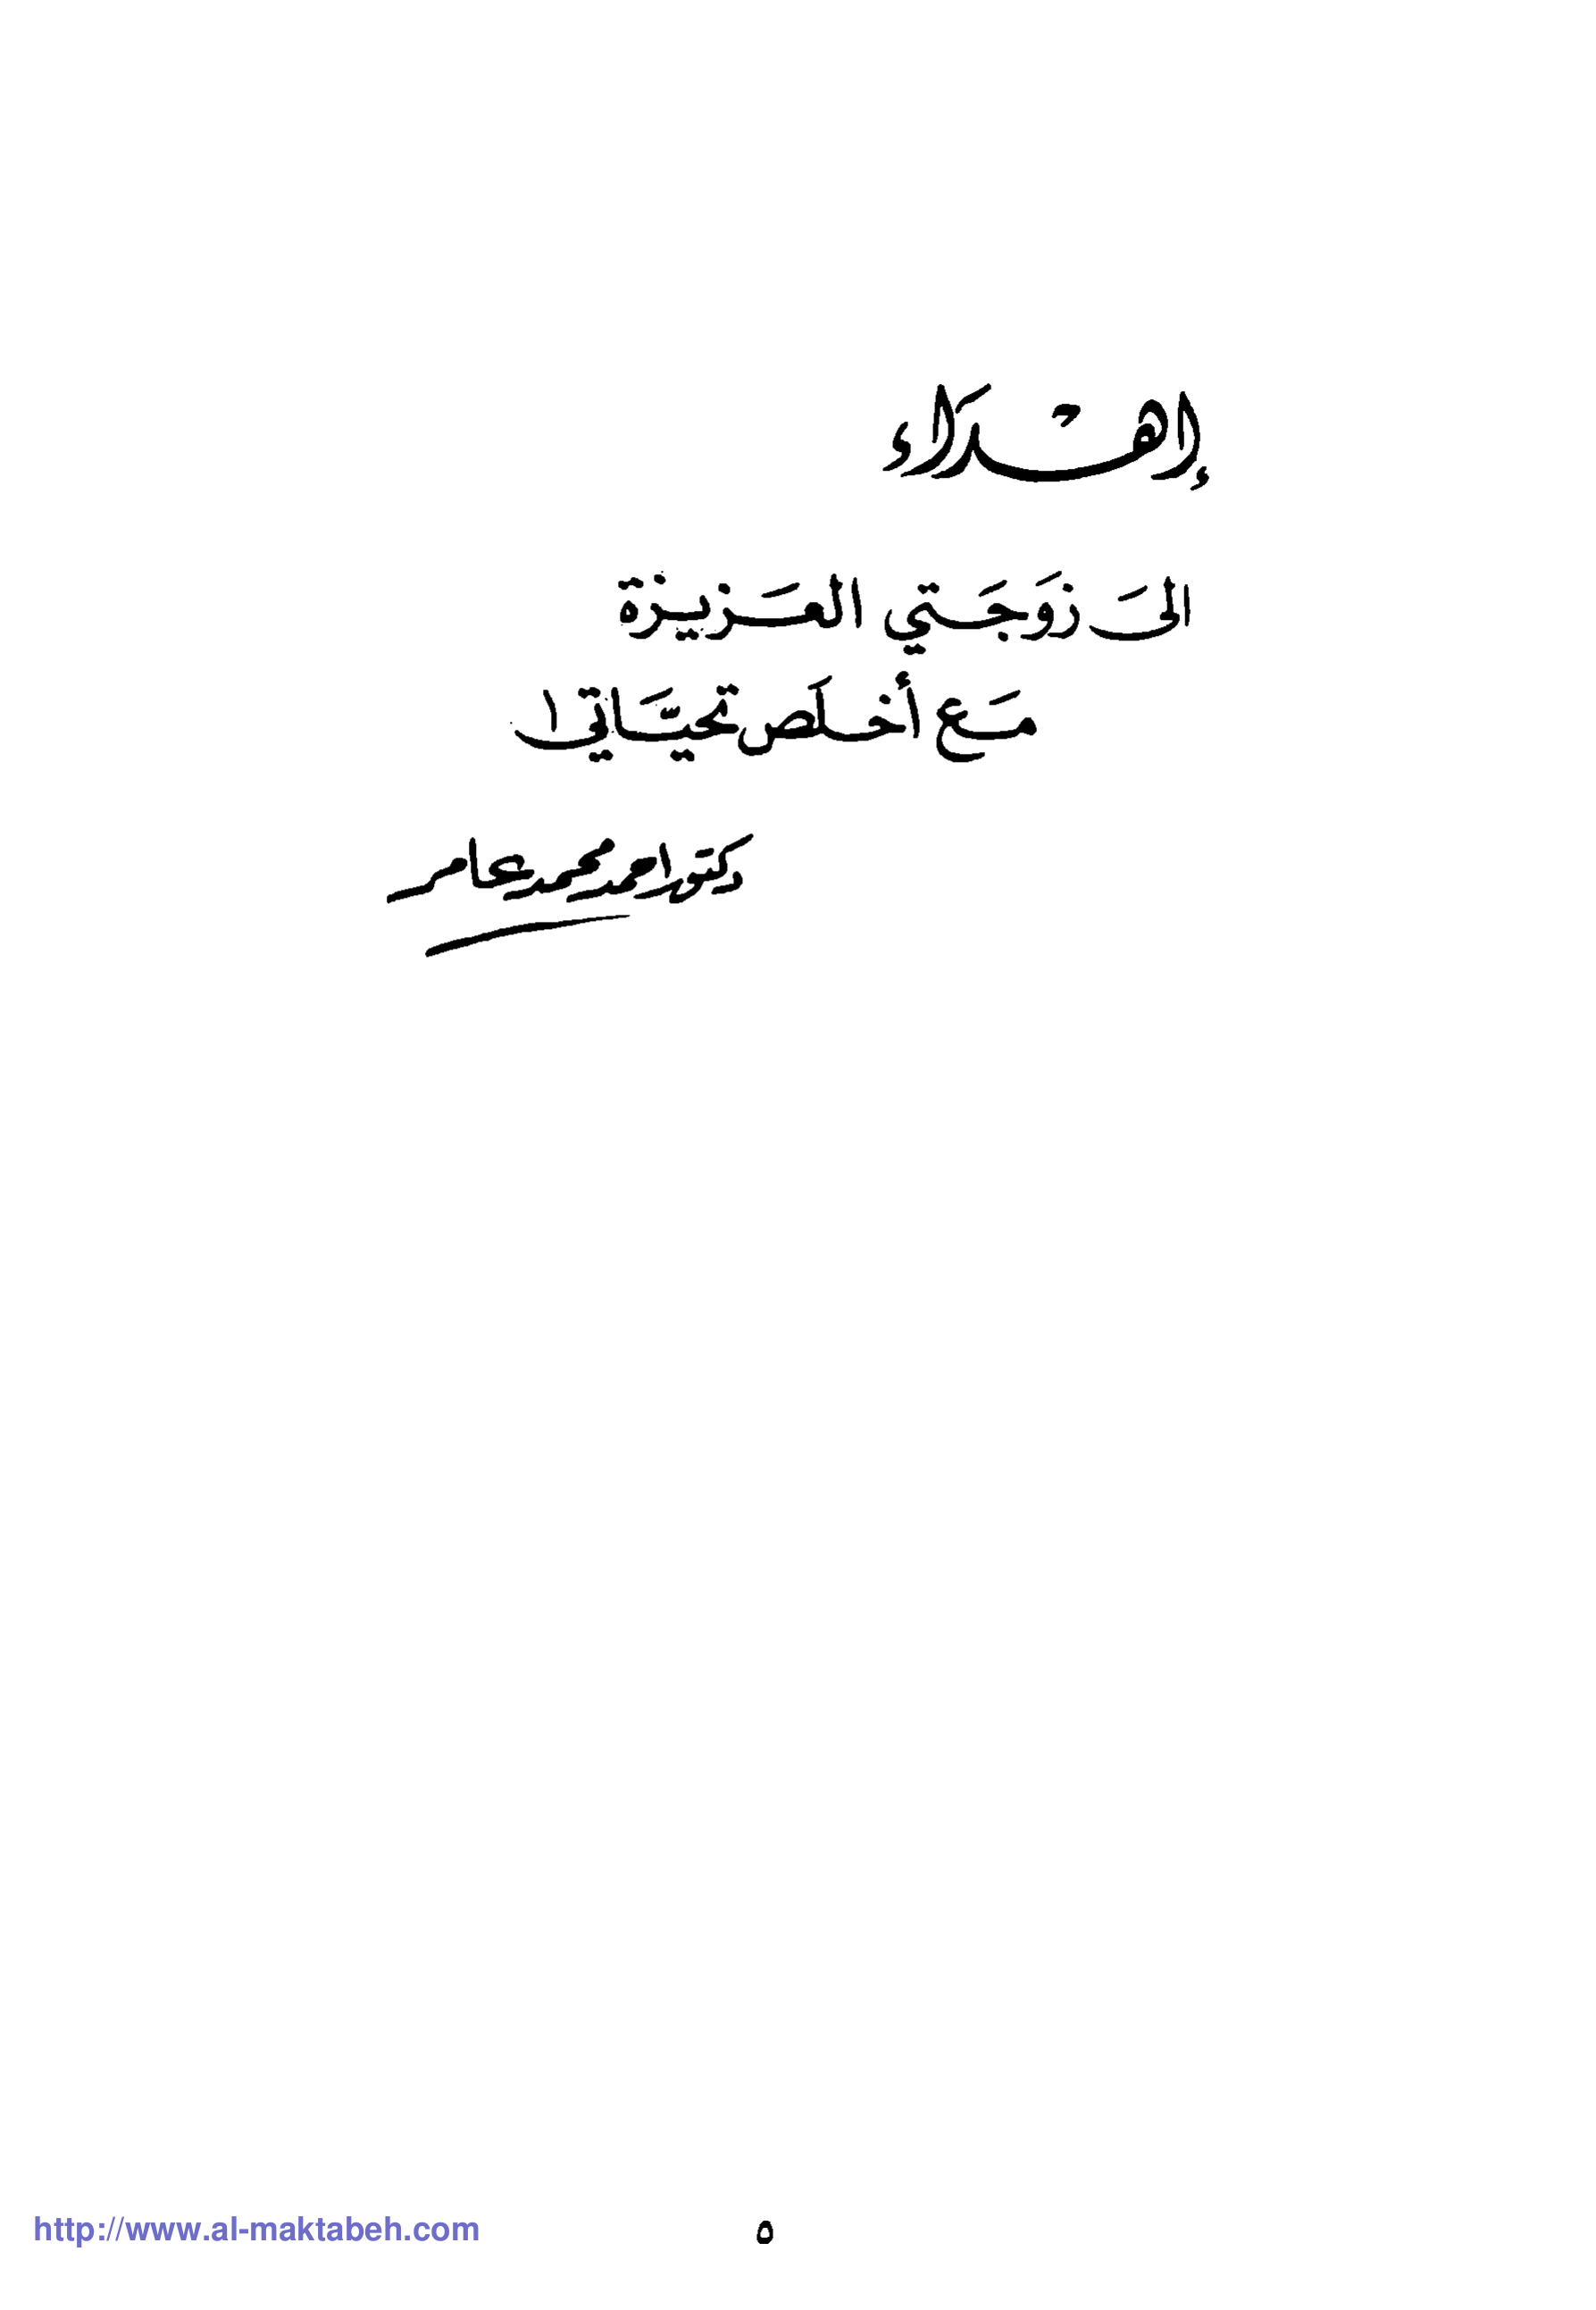 إهداء
الىَ زَوَجَتي العَزيزة
مَع أخلَص تحيّاتي ا
دكتور احمد محمد عامر
http://www.al-maktabeh.com
٥